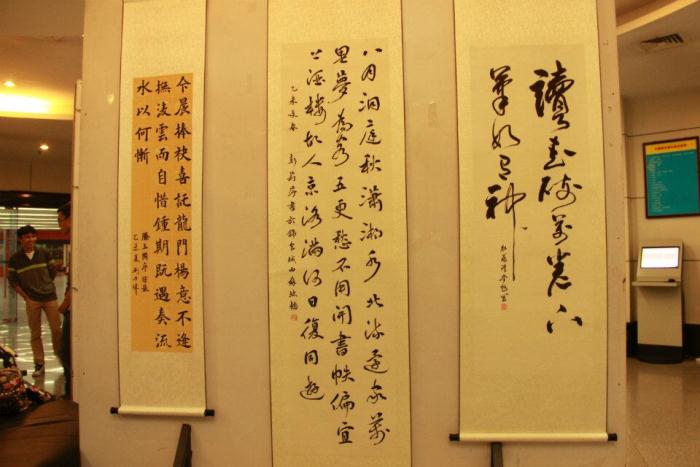 今晨捧袂喜託龍門楊意不逢
撫淩雲而自惜鍾期既遇奏流
水以何慚
滕王閣序節錄
八月洞庭秋瀟湘水北流還家萬
里夢為客五更愁不用開書帙偏宜
上酒樓故人京洛滿何日復同遊
讀書破萬卷下
筆如有神